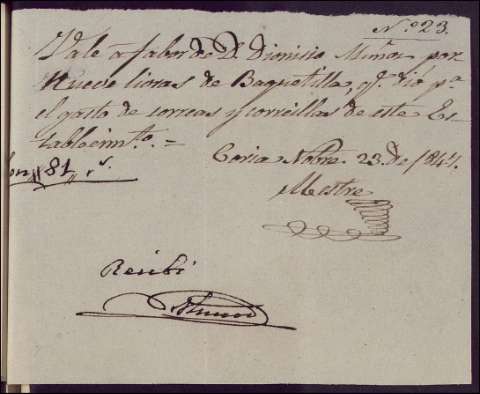 N.º 23.
Vale á fabor de D. Dionisio Muñoz por
Nueve libras de Baquetilla, q.e dio p.a
el gasto de correas y correillas de este Es-
tablecim.to =
Coria Nobre. 23. de 1847.
Son 81 r.s
Mestre
Recibi
Muñoz